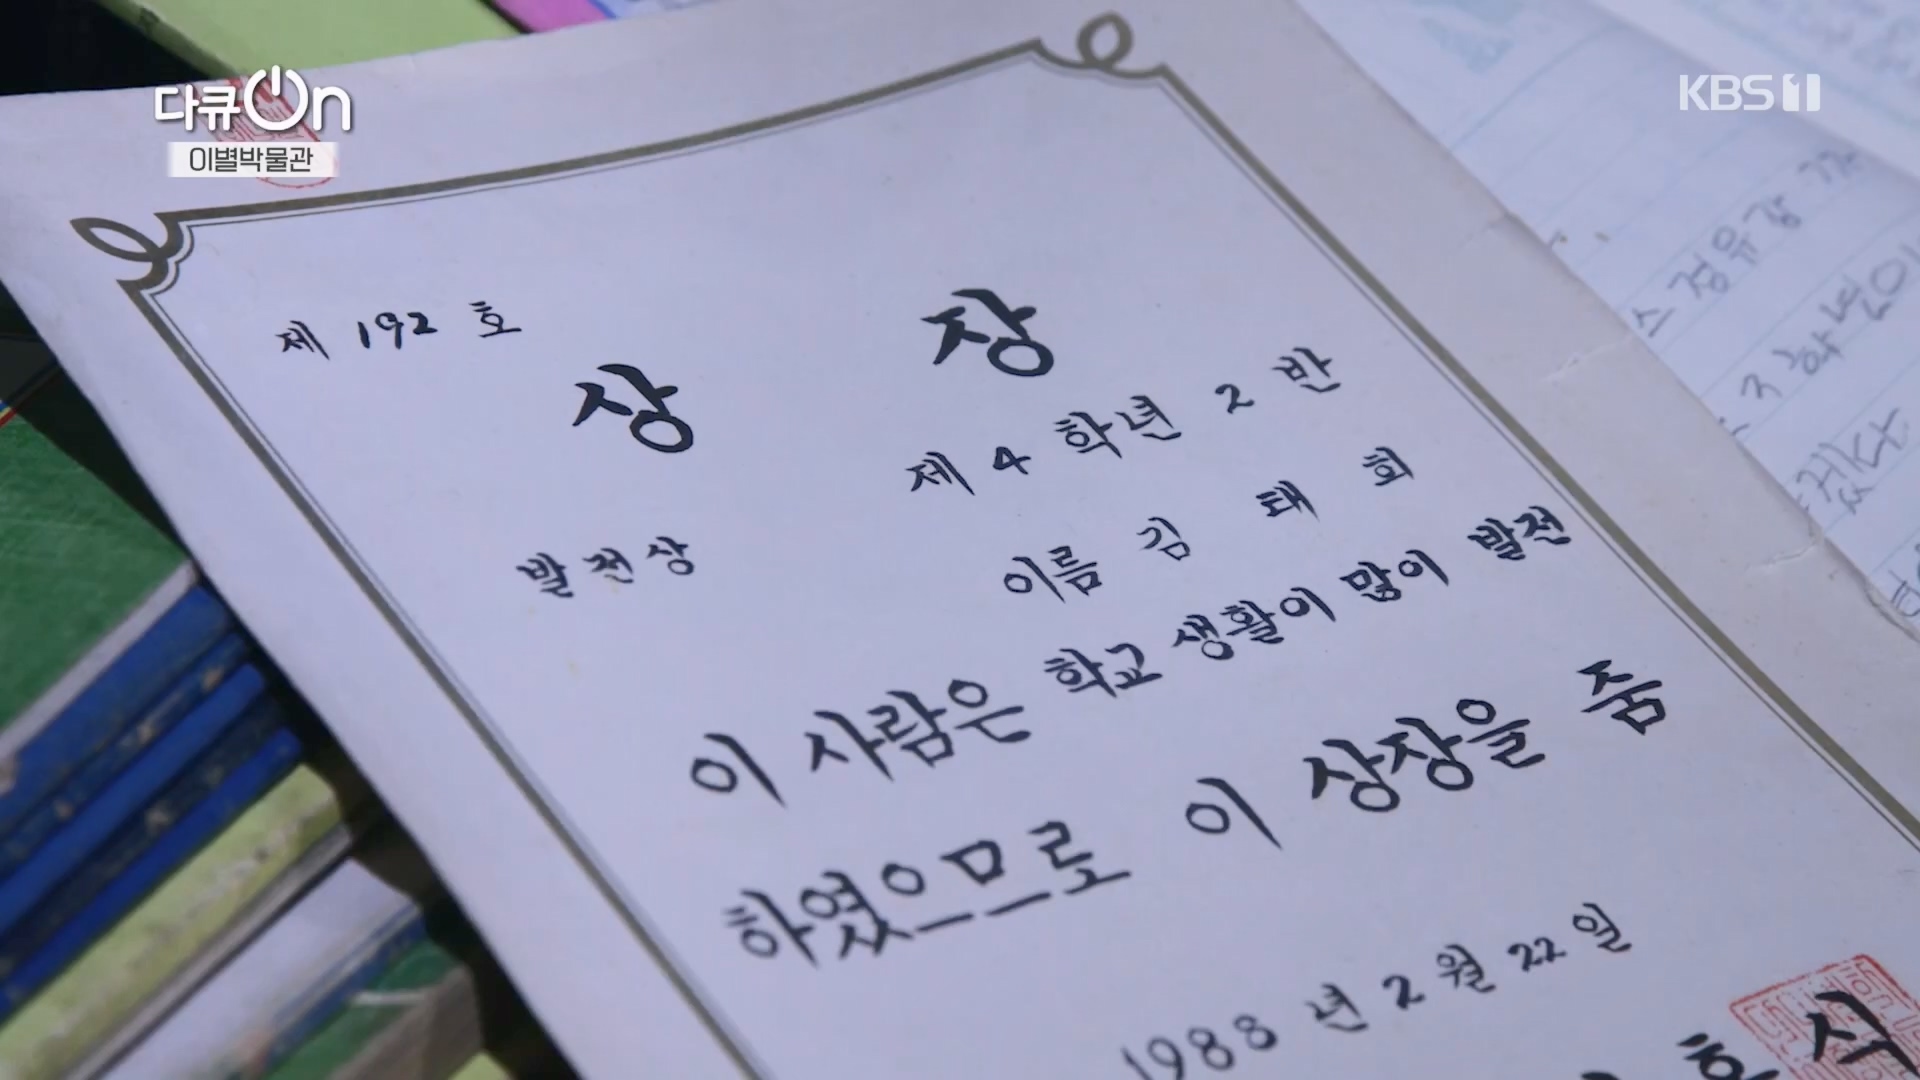 다큐On
이별박물관
KBS 1
제 192 호
상 장
제 4 학년 2 반
발전상
이름 김 태 희
이 사람은 학교 생활이 많이 발전
하였으므로 이 상장을 줌
1988 년 2 월 22 일
스 정유강
3 학년이